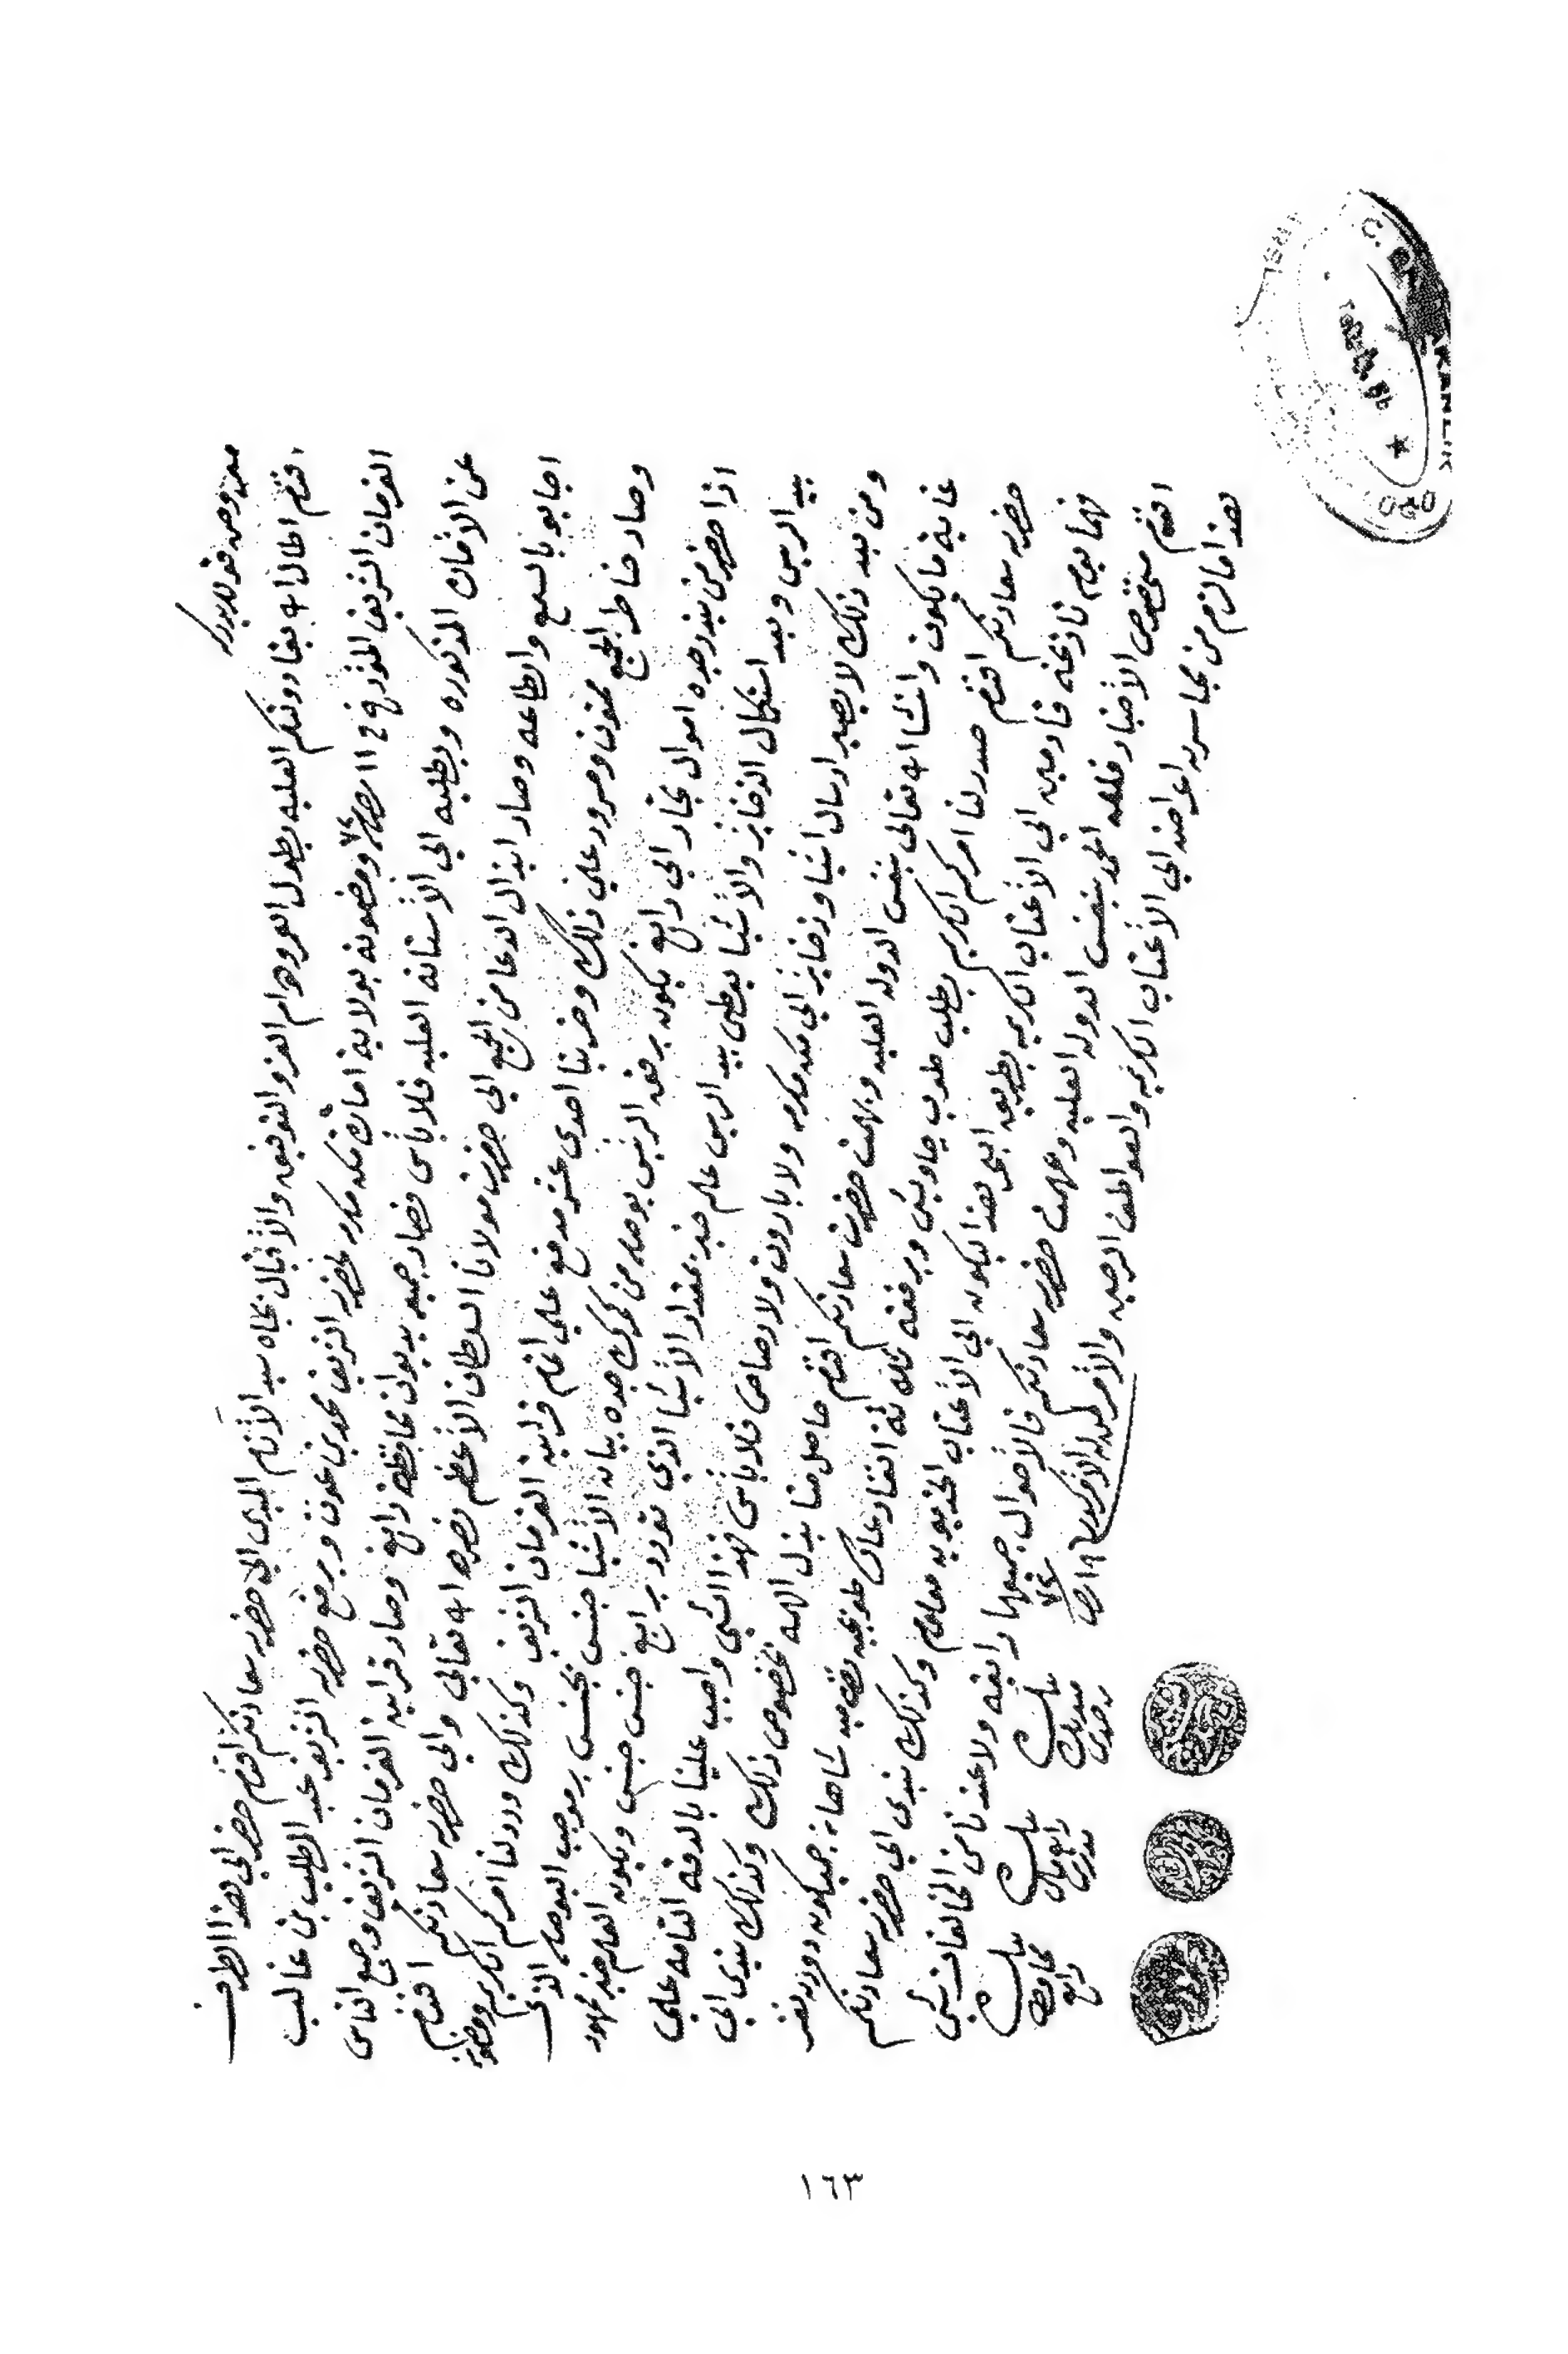 معروض قوللريدركه
افندم اطال الله بقا دولتكم العليه بطول العمر ودوام العز والتوفيق والأقبال بجاه سيد الأنام المبدى الي حضرة سعادتكم افندم حضر الي هذا الطرف
الفرمان الشريف المؤرخ في ١١ ومضمونه بولاية امارة مكه مكرمه لحضرة الشريف محمد بن عون وبرفع حضرة الشريف عبد المطلب بن غالب
عن الامارة المذكوره وبطلبه الي الأستانه العليه فلا بأس فصار جمعيه بديوان محافظة رابغ وصار قراية الفرمان الشريف وجميع الناس
اجابو بالسمع والطاعه وصار ابذال الدعا من الجميع الي حضرت مولانا السلطان الأعظم نصره الله تعالي والي حضرة سعادتكم افندم
وصار خاطر الجميع ممنون ومسرور علي ذلك وضربنا احدى عشر مدفع علي اتمام قراية الفرمان الشريف وكذلك ورد لنا امركم الكريم ومضمونه
اذا حضر من بندر جده اموال تجار الي رابغ يكون برفق الريس بوصله من كمرك جده ببيان الأشيا جنس بجنس بموجب البوصله الذي
بيد الريس وبعد استكمال الذخاير والأشيا يعطى بيد الريس علم خبر بمقدار الأشيا الذي تورد برابغ جنس جنس ويكون العلم خبر ممهور
ومن بعد ذلك لا يصير ارسال اشيا وذخاير الي مكه مكرمه ولا بارود ولا رصاص فلا بأس فهذا الشي واجب علينا بالدقه التامه علي
غاية ما يكون وانشا الله تعالى بنفس الدوله العليه وبهمت حضرت سعادتكم افندم حاصل منا بذل الهمه بخصوص ذلك وكذلك نبدى الي
حضرة سعادتكم افندم صدر لنا امركم الكريم بطلب طوب جاويش وبرفقه ثلاثة انفار عساكر طوبجيه شاهانه
فهما يوم تاريخه قادمين الي الأعتاب الكريمه بطريق البحر لهذا ليكون الي الأعتاب الخديويه معلوم وكذلك نبدى الي حضرة سعادتكم
افندم من خصوص الأخبار فلله الحمد بنفس الدوله العليه وهمت حضرة سعادتكم فالأحوال جميعها رايقه ولا عندنا من المخالفات شي
هذا ما لزم من تجاسرت اعراضه الي الأعتاب الكريمه والعواطف الرحيمه والأمر لمن له الأمر افندم ١٩
بنده
محافظ
رابغ
بنده
بنده
١٤٣